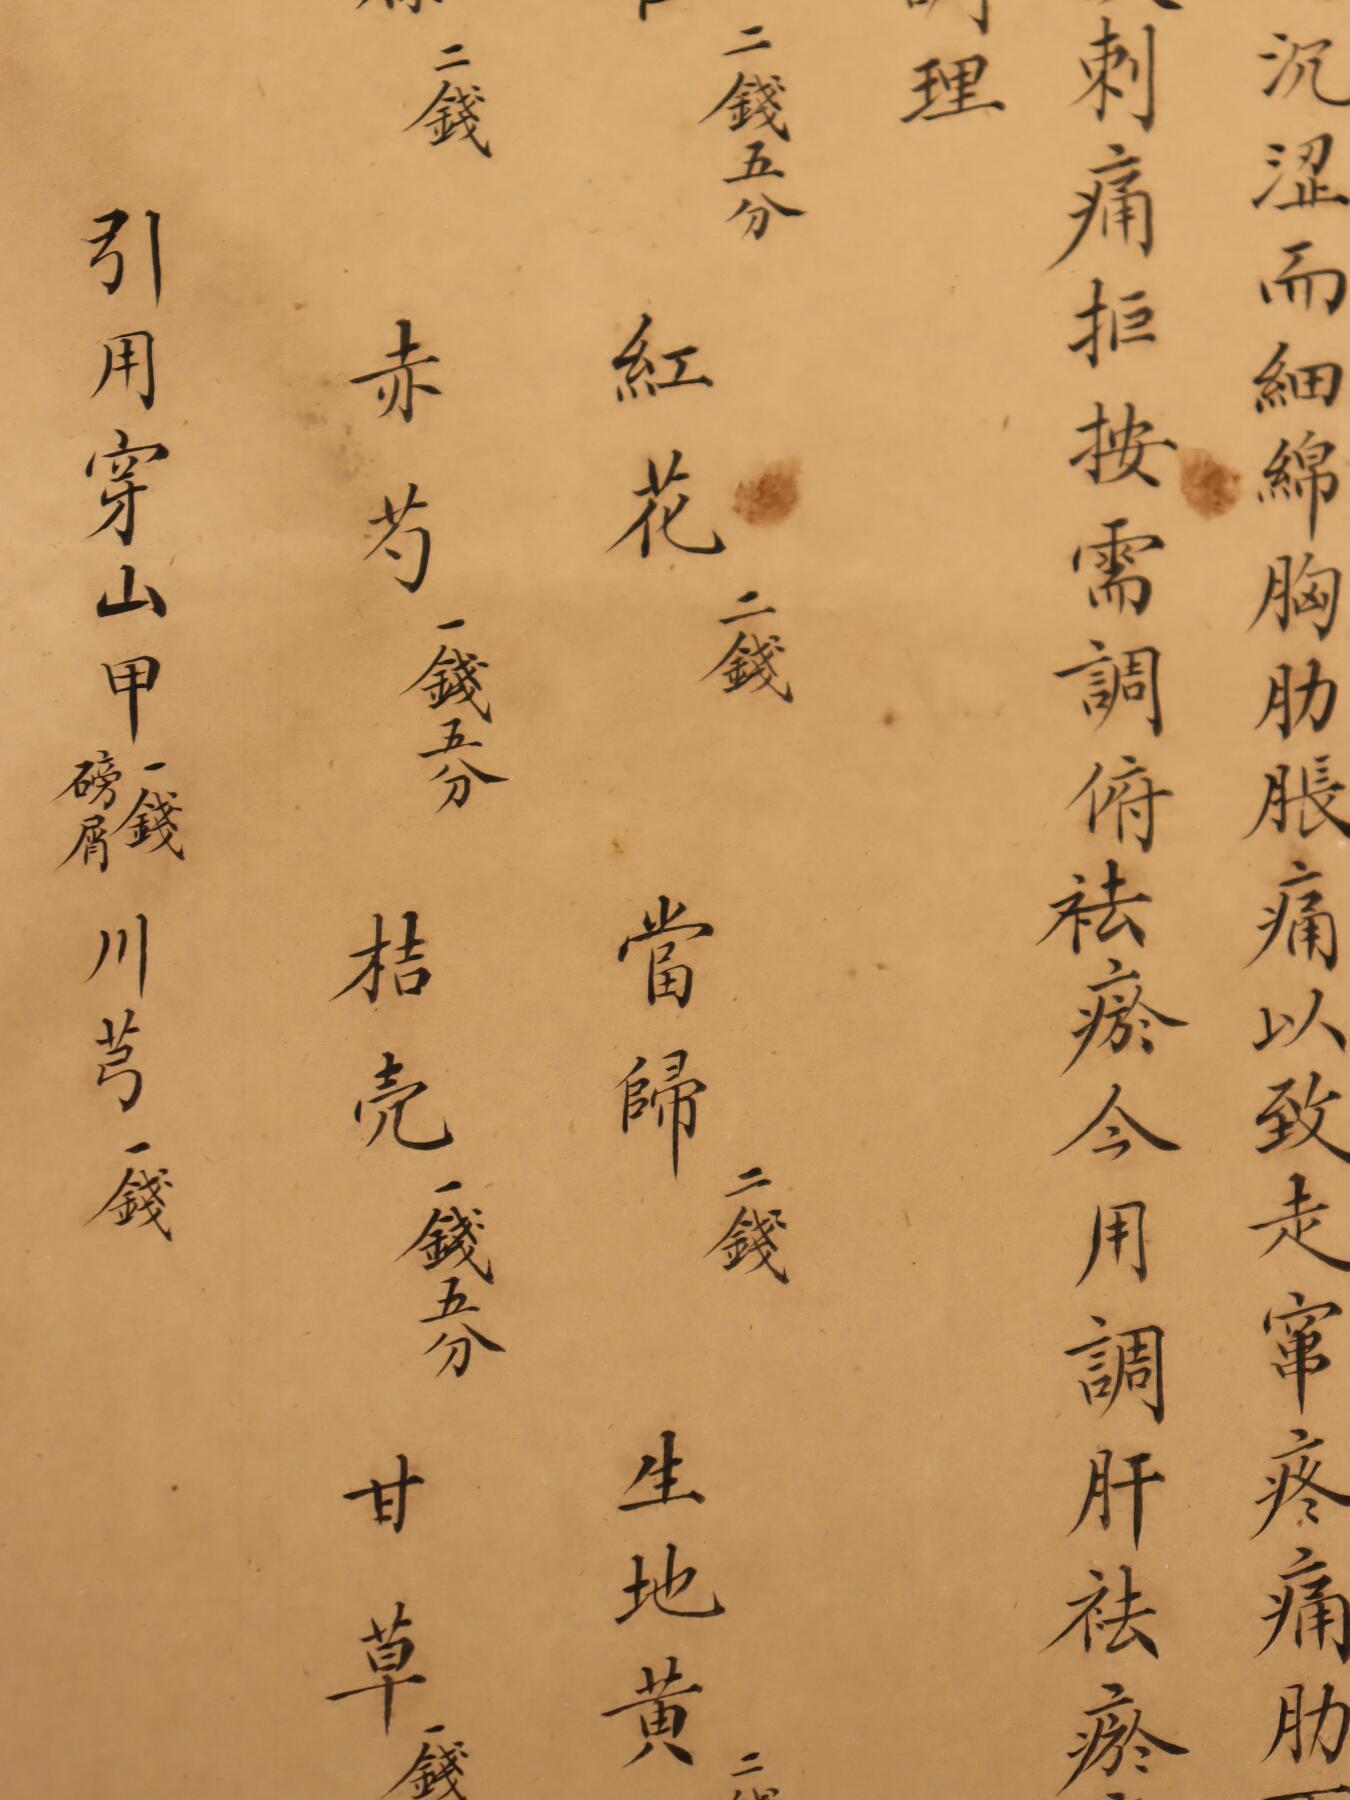 沉涩而細綿胸肋脹痛以致走窜疼痛肋
刺痛拒按需調俯祛瘀今用調肝祛瘀
調理
二錢五分 紅花 二錢 當歸 二錢 生地黄 二錢
二錢 赤芍 一錢五分 桔壳 一錢五分 甘草 一錢
引用穿山甲 一錢 磅屑 川芎 一錢